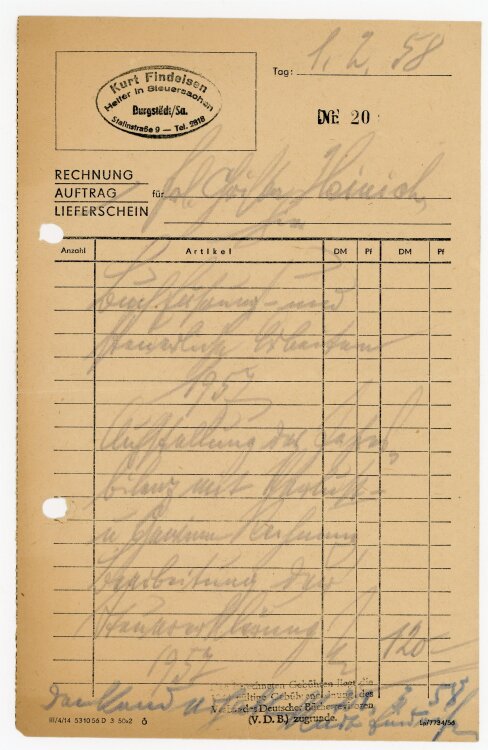 Kurt Findeisen
Helfer in Steuersachen
Burgstädt/Sa.
Stalinstraße 9 — Tel. 2818
Tag: 1. 2. 58
№ 20
RECHNUNG
AUFTRAG
LIEFERSCHEIN
für
Heinich
Anzahl Artikel DM Pf DM Pf
Buchführung- und
steuerliche Arbeiten
1957
Aufstellung der Jahres
bilanz mit Verlust-
u Gewinn Rechnung
Bearbeitung der
Steuererklärung
120.-
1957
Gebühren liegt die
des
Verbandes Deutscher Bücherrevisoren
(V.D.B.) zugrunde.
Dankend
58
III/4/14 5310 56 D 3 50x2